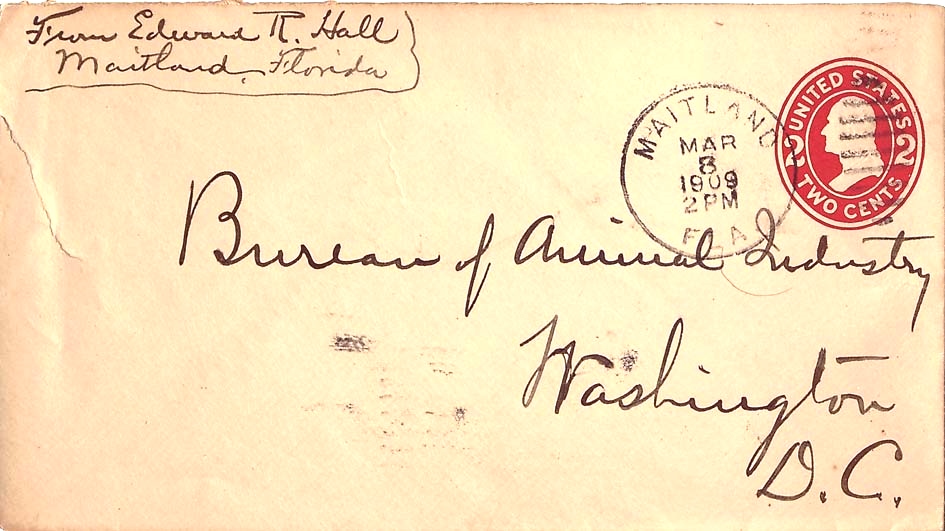 From Edward R. Hall
Maitland, Florida
MAITLAND
MAR
8
1909
2 PM
FLA
UNITED STATES
2 2
TWO CENTS
Bureau of Animal Industry
Washington
D.C.